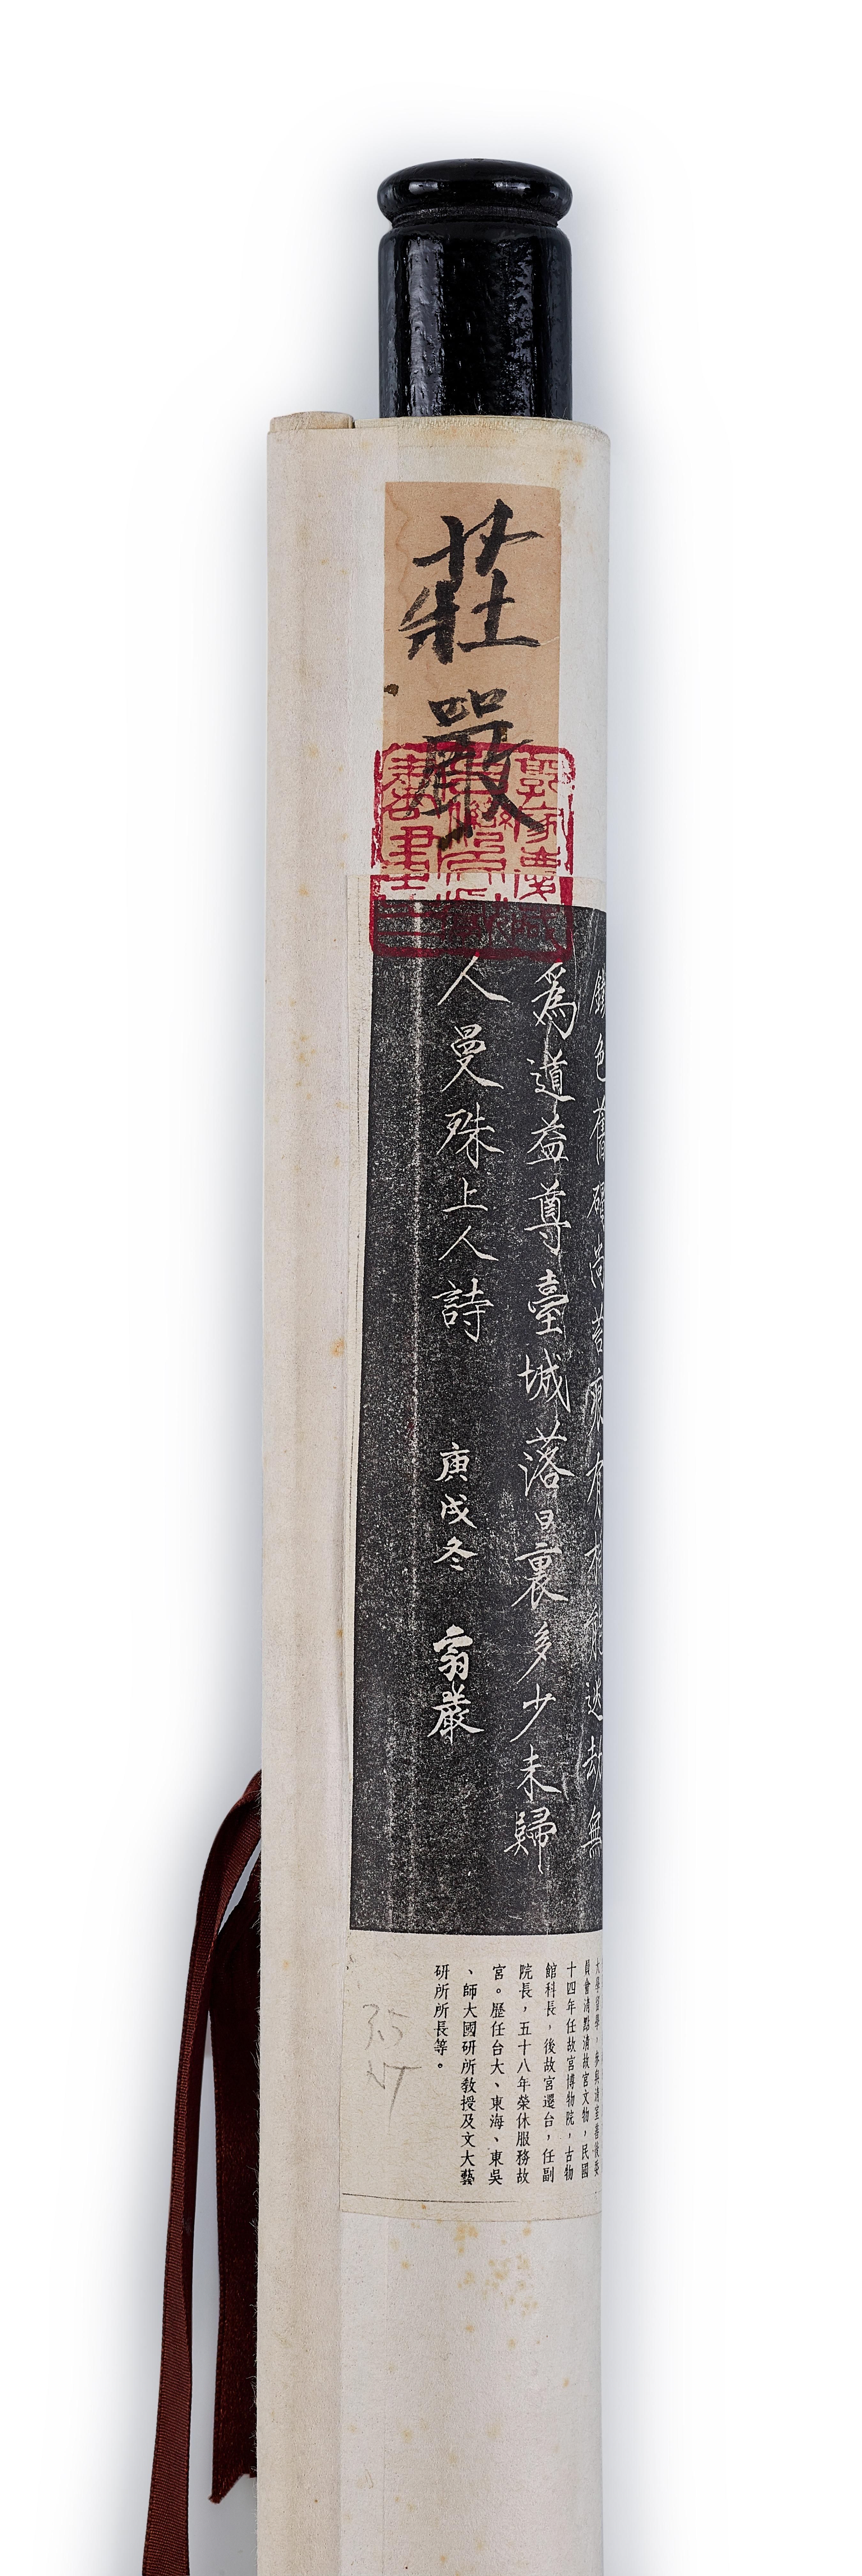 莊嚴
色舊尚苔無
爲道益尊臺城落日裏多少未歸
人曼殊上人詩 庚戌冬 翁嚴
大學留學，參與清室善後委
員會清點清故宮文物，民國
十四年任故宮博物院，古物
館科長，後故宮遷台，任副
院長，五十八年榮休服務故
宮。歷任台大、東海、東吳
、師大國研所教授及文大藝
研所所長等。